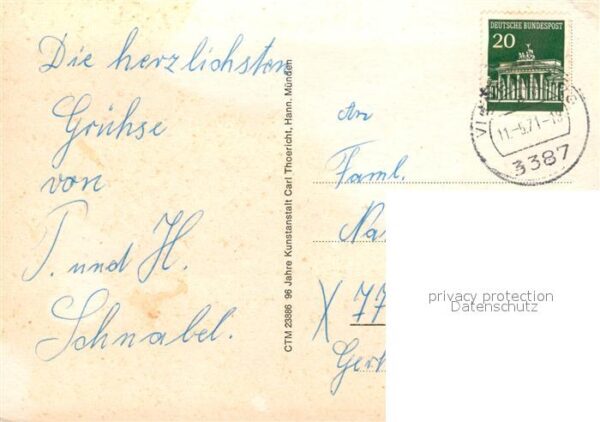 Die herzlichsten
Grühse
von
T. und H.
Schnabel.
CTM 23886 96 Jahre Kunstanstalt Carl Thoericht, Hann. Münden
DEUTSCHE BUNDESPOST
20
11.-6.71-1
3387
An
Faml.
Na
X 77
Gert
privacy protection
Datenschutz